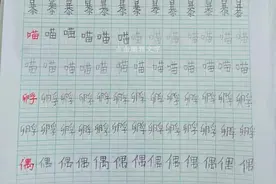 暴暴暴暴暴暴暴暴暴暴暴
喵喵喵喵喵喵喵喵喵喵喵
喵喵喵喵喵喵喵喵喵喵喵
孵孵孵孵孵孵孵孵孵孵孵孵
孵孵孵孵孵孵孵孵孵孵孵孵
偶偶偶偶偶偶偶偶偶偶偶